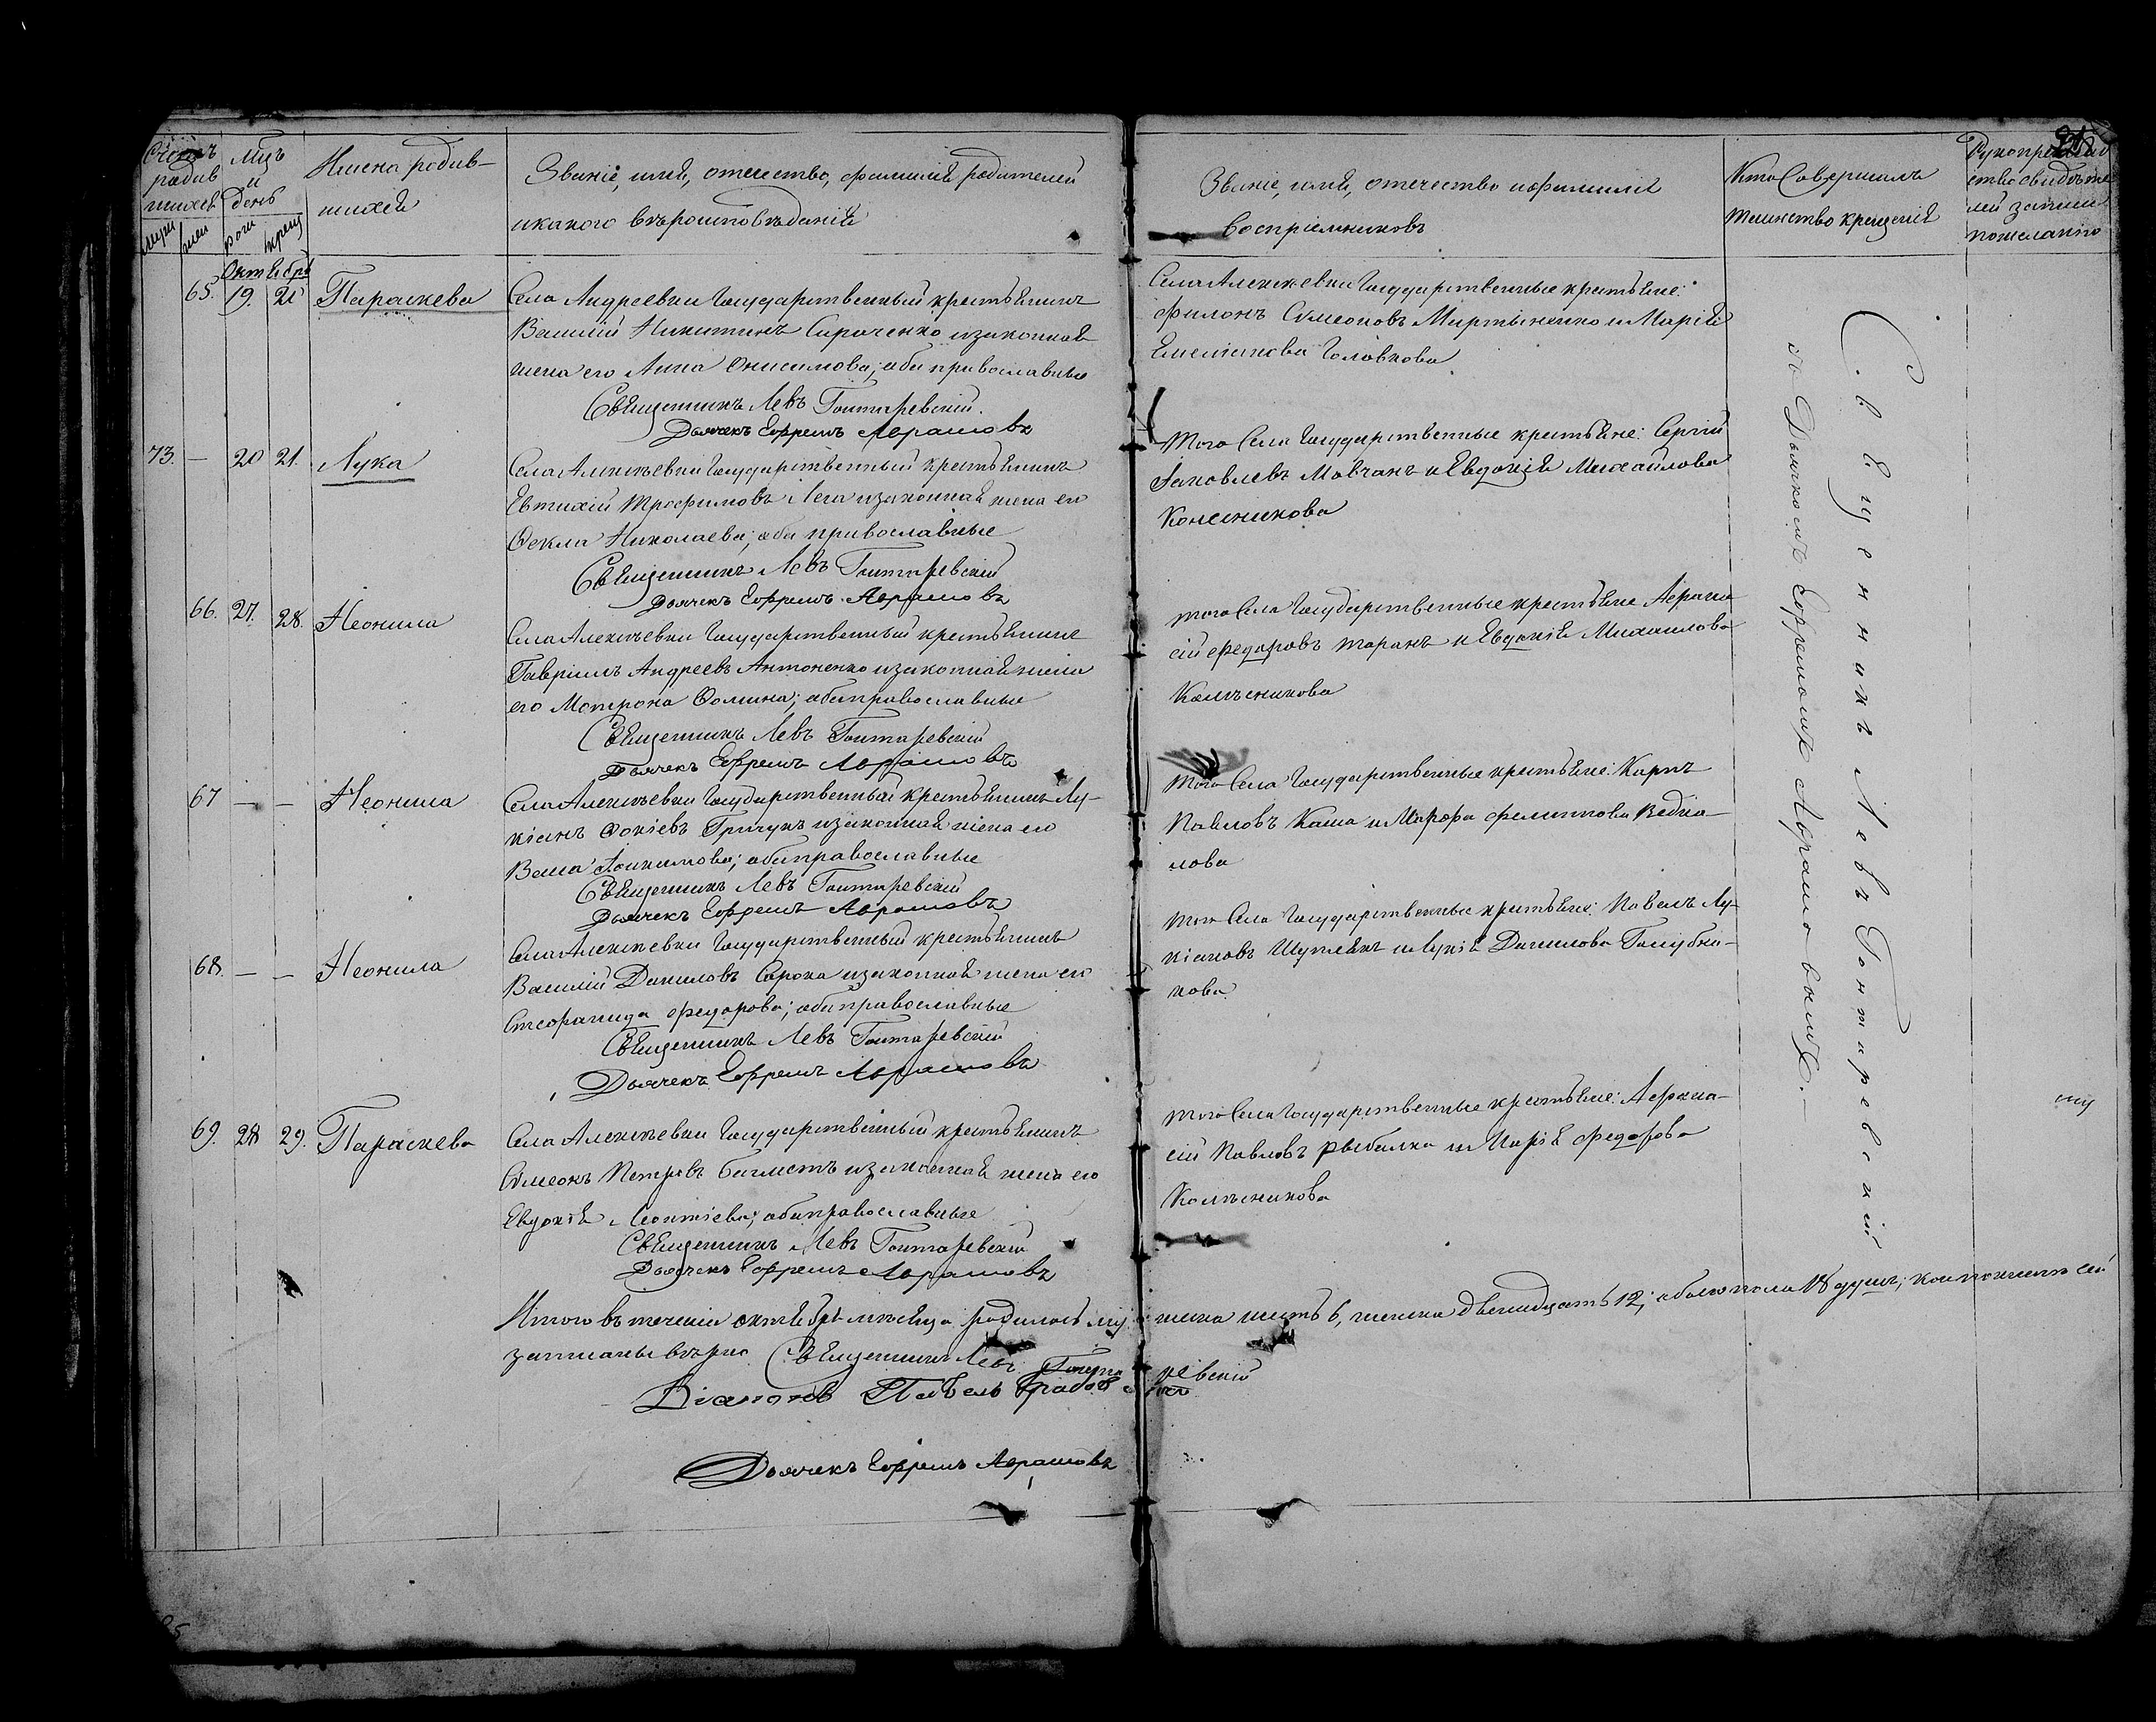 Счетъ родив шихся
муж жен
Мцъ и день
рож крещ
Имена родив-
шихся
Званіе, имя, отечество, фамилія родителей
и какого вѣроисповѣданія
Званіе, имя, отечество и фамилія
воспріемниковъ
Кто Совершилъ
таинство крещенія
Рукоприклад
ство свидѣте
лей записи
по желанію
Октября
65. 19. 21 Параскева
Села Андреевки Государственный крестьянинъ
Василій Никитинъ Сираченко и законная
жена его Анна Онисимова; оба православные
Священникъ Левъ Гонтаревскій.
Дьячекъ Ефремъ Аврамовъ
Села Алексѣевки Государственные крестьяне:
Филонъ Симеоновъ Мартыненко и Марія
Емельянова Головкова
73. — 20 21. Лука
Села Алексѣевки Государственный крестьянинъ
Евтихій Трофимовъ Лега и законная жена его
Ѳекла Николаева; оба православные
Священникъ Левъ Гонтаревскій
Дьячекъ Ефремъ Аврамовъ
Того Села Государственные крестьяне: Сергій
Іаковлевъ Мовчанъ и Евдокія Михайлова
66. 27. 28. Неонила
Села Алексѣевки Государственный крестьянинъ
Гавріилъ Андреевъ Антоненко и законная жена
его Мотрона Ѳомина; оба православные
Священникъ Левъ Гонтаревскій
Дьячекъ Ефремъ Аврамовъ
того Села Государственные крестьяне Афана
сій Федоровъ Таранъ и Евдокія Михаилова
Колѣсникова
67 — — Неонила
Села Алексѣевки Государственный крестьянинъ Лу-
кіанъ Фокіевъ Гричунъ и законная жена его
Васса Іоакимова; оба православные
Священникъ Левъ Гонтаревскій
Дьячекъ Ефремъ Аврамовъ
того Села Государственные крестьяне: Карпъ
Павловъ Каша и Марфа Филиппова Ведка-
лова
68. — — Неонила
Села Алексѣевки Государственный крестьянинъ
Василій Даниловъ Сорока и законная жена его
Стефанида Федорова; оба православные
Священникъ Левъ Гонтаревскій
Дьячекъ Ефремъ Аврамовъ
того Села Государственные крестьяне: Павелъ Лу-
кіановъ Шутякъ и Лукія Данилова Голубни-
кова
69. 28 29. Параскева
Села Алексѣевки Государственный крестьянинъ
Симеонъ Петровъ Баглистъ и законная жена его
Евдокія Леонтіева; оба православные
Священникъ Левъ Гонтаревскій
Дьячекъ Ефремъ Аврамовъ
того Села Государственные крестьяне: Афана-
сій Павловъ Рыбалка и Марія Федорова
Колѣсникова
Священникъ Левъ Гонтаревскій
съ Дьячкомъ Ефремомъ Аврамовымъ.
Итого въ теченіи октября мѣсяца родилось мужеска шесть 6, женска двенадцать 12, обоего пола 18 душъ; кои
записаны вѣрно. Священникъ Левъ Гонтаревскій
Діаконъ Павелъ
Дьячекъ Ефремъ Аврамовъ